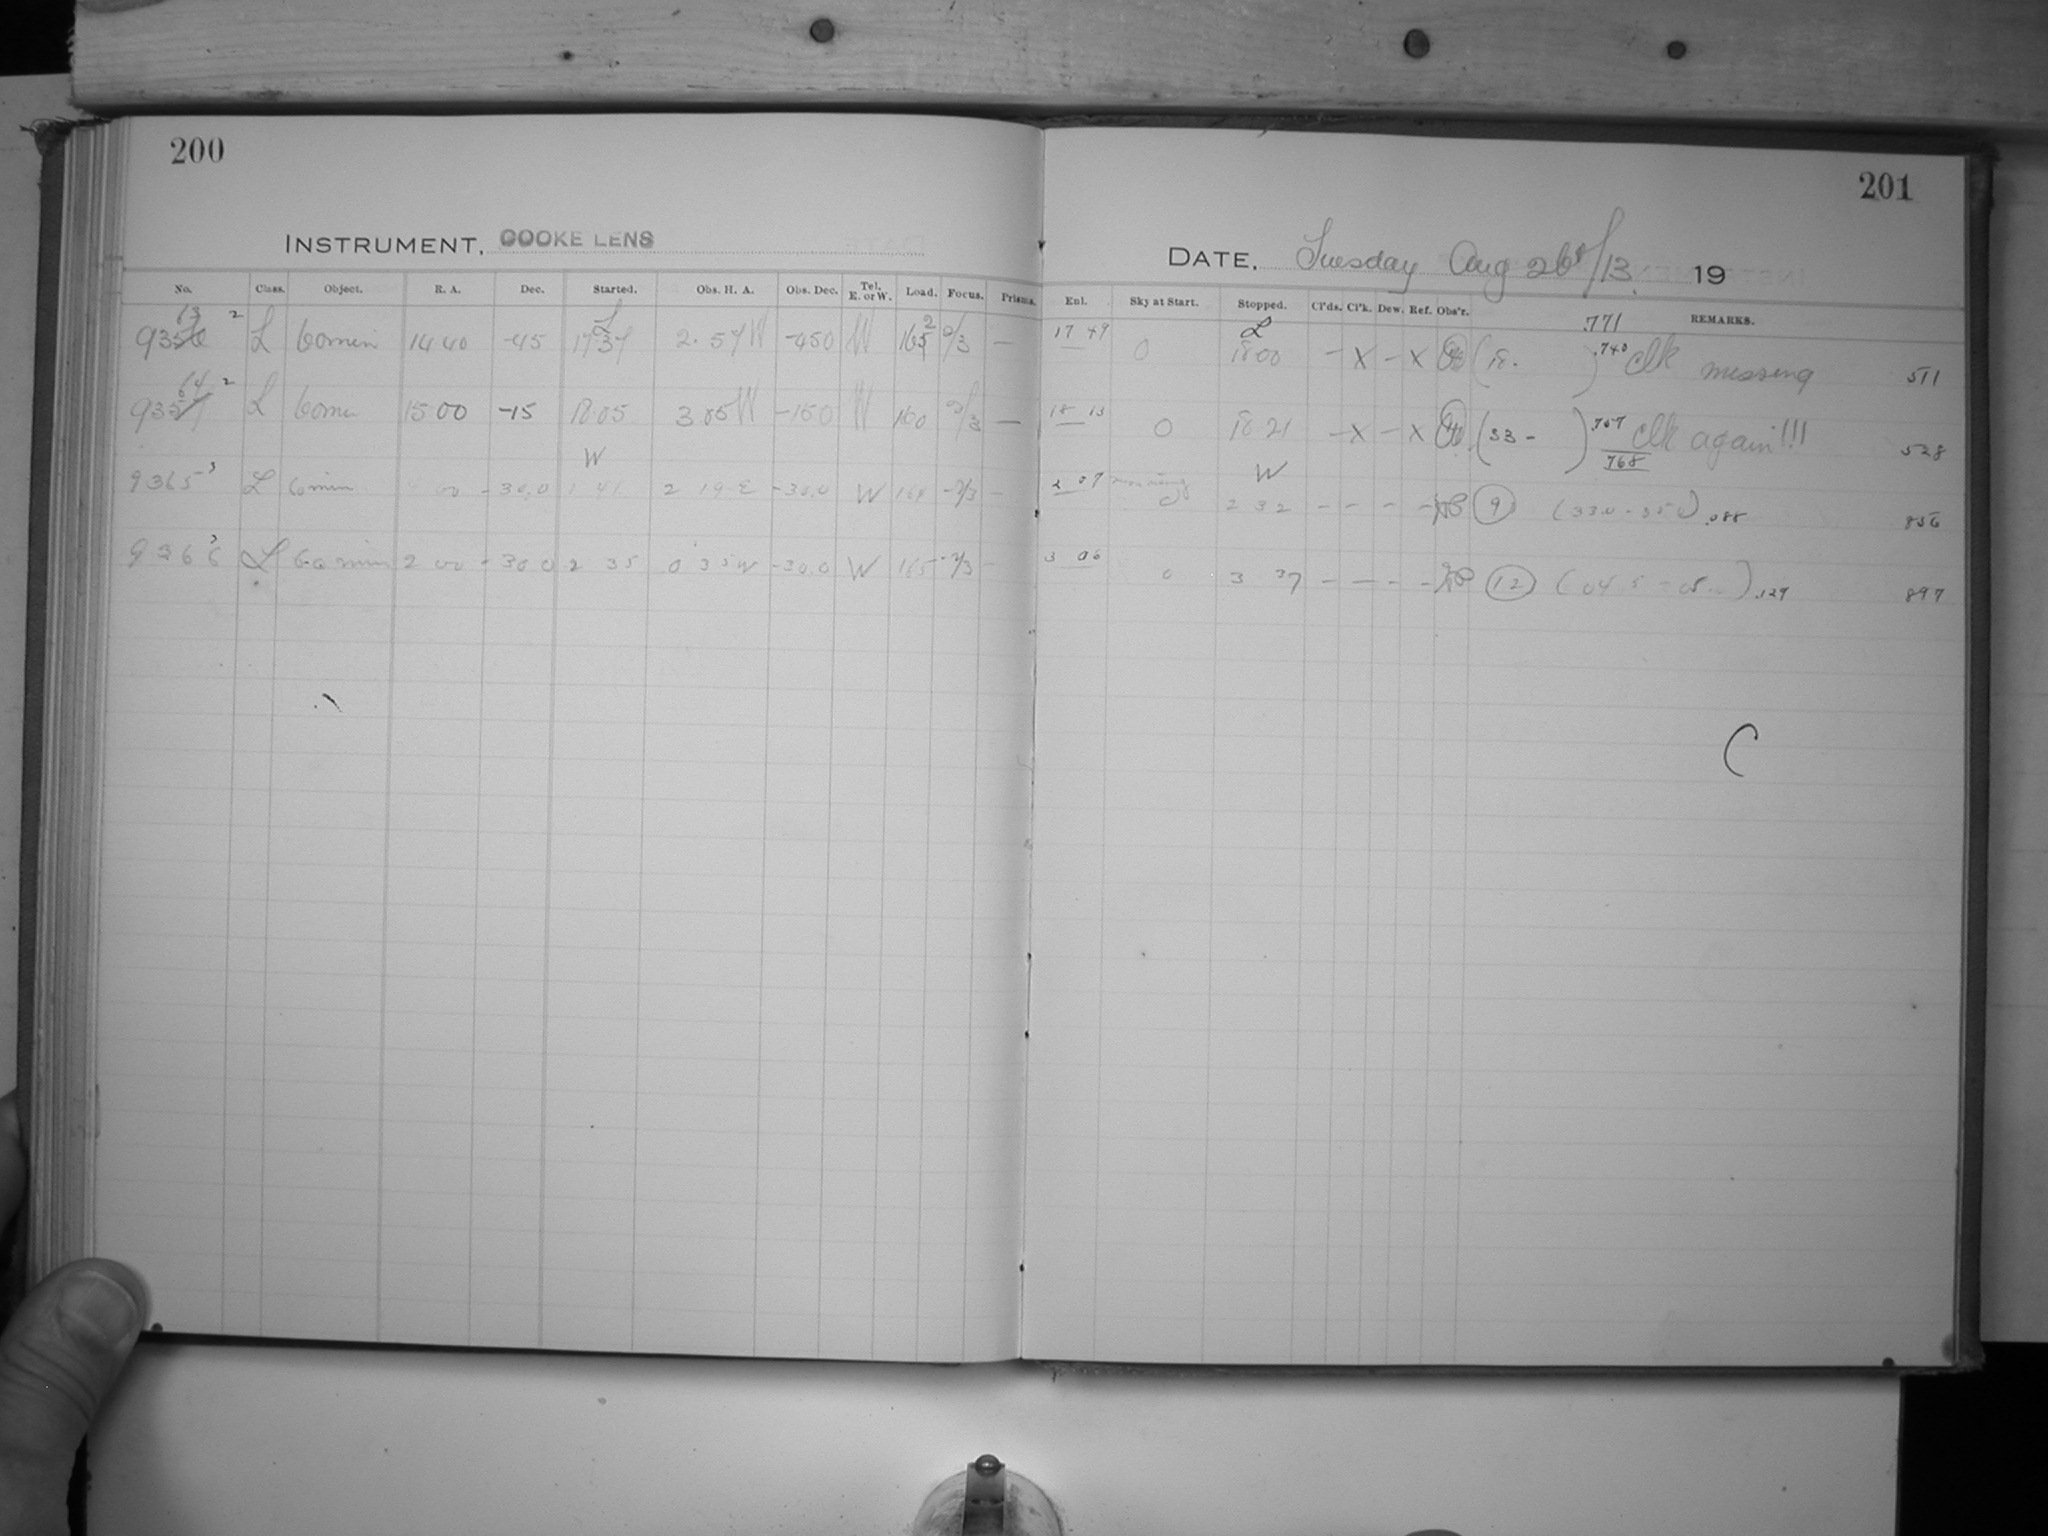 200
201
INSTRUMENT, COOKE LENS
DATE, Tuesday Aug 26th/13 19
No. Class. Object. R. A. Dec. Started. Obs. H. A. Obs. Dec. Tel. E. or W. Load. Focus. Prisms. Enl. Sky at Start. Stopped. Cl'ds. Cl'k. Dew. Ref. Obs'r. REMARKS.
63 2 L L .771
9356 L 60 min 14 40 -45 17 37 2. 57 W -450 W 165 2/3 — 17 49 0 18 00 - X - X (18. ) .740 clk missing 511
64 2
9357 L 60 min 15 00 -15 18 05 3 05 W -150 W 160 2/3 — 18 13 0 18 21 - X - X (33 - ) .757 clk again!!! 528
.768
W W
9365 3 L 60 min 00 -30.0 1 41 2 19 E -30.0 W -2/3 - 2 07 morning 0 2 32 - - - - 9 (33.0 - 35.0) .088 856
9366 3 L 60 min 2 00 -30 0 2 35 0 35 W -30.0 W 165 -2/3 - 3 06 0 3 37 - - - - 12 (04.5 - ) .129 897
C